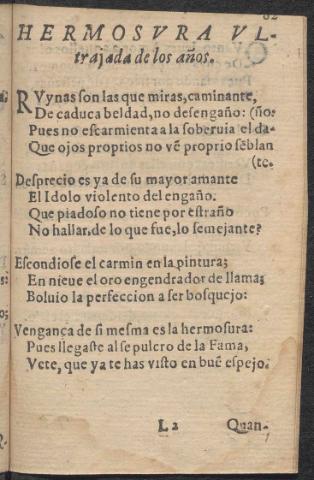 82
HERMOSVRA VL-
trajada de los años.
RVynas son las que miras, caminante,
De caduca beldad, no desengaño: (ño.
Pues no escarmienta a la soberuia el da-
Que ojos proprios no vẽ proprio sẽblan
(te.
Desprecio es ya de su mayor amante
El Idolo violento del engaño.
Que piadoso no tiene por estraño
No hallar, de lo que fue, lo semejante?
Escondiose el carmin en la pintura;
En nieue el oro engendrador de llama;
Boluio la perfeccion a ser bosquejo:
Vengança de si mesma es la hermosura:
Pues llegaste al sepulcro de la Fama,
Vete, que ya te has visto en buẽ espejo.
L2 Quan-